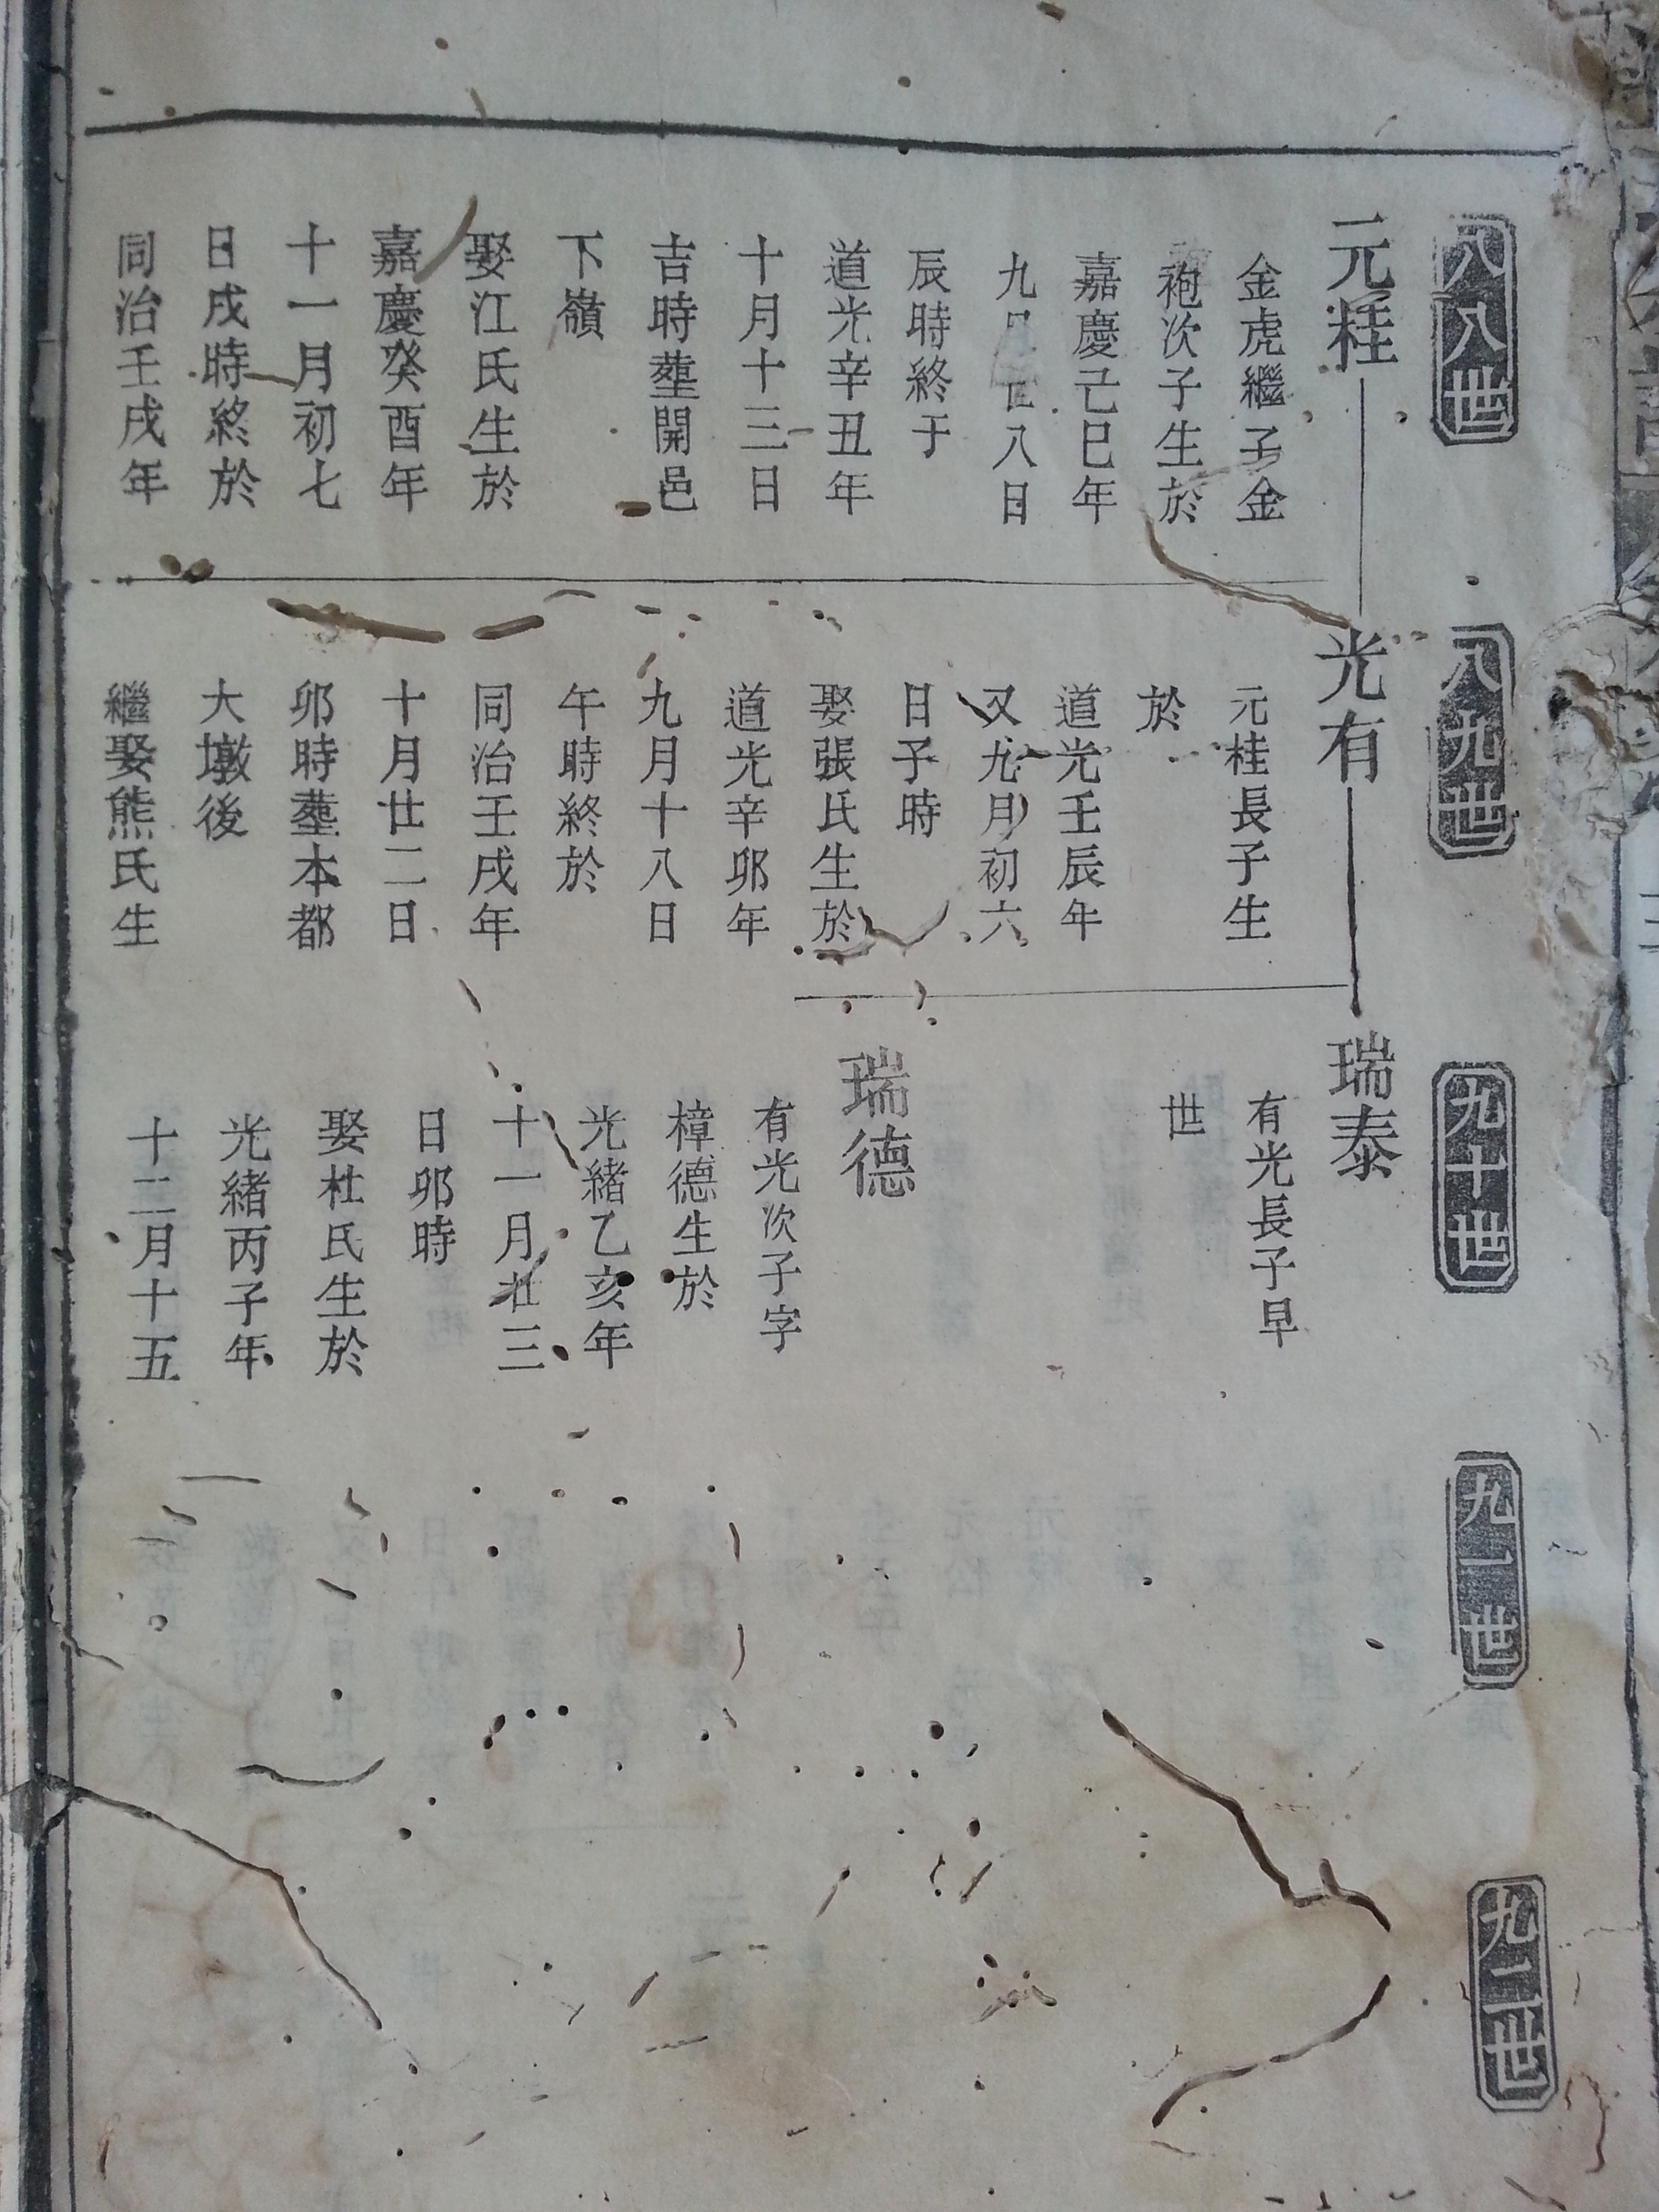 八八世
元桂
金虎繼子金
袍次子生於
嘉慶己巳年
九月廿八日
辰時終于
道光辛丑年
十月十三日
吉時塟開邑
下嶺
娶江氏生於
嘉慶癸酉年
十一月初七
日戌時終於
同治壬戌年
八九世
光有
元桂長子生
於
道光壬辰年
又九月初六
日子時
娶張氏生於
道光辛卯年
九月十八日
午時終於
同治壬戌年
十月廿二日
卯時塟本都
大墩後
繼娶熊氏生
九十世
瑞泰
有光長子早
世
瑞德
有光次子字
樟德生於
光緒乙亥年
十一月廿三
日卯時
娶杜氏生於
光緒丙子年
十二月十五
九一世
九二世